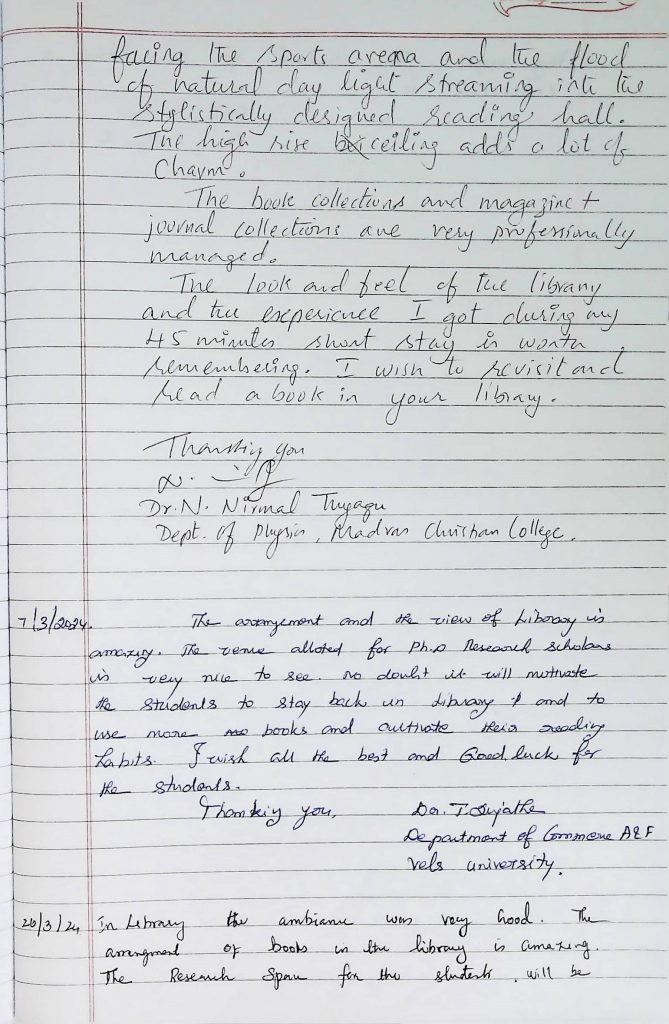 facing the sports arena and the flood
of natural day light streaming into the
stylistically designed reading hall.
The high rise ceiling adds a lot of
Charm.
The book collections and magazine +
journal collections are very professionally
managed.
The look and feel of the library
and the experience I got during my
45 minutes short stay is worth
remembering. I wish to revisit and
read a book in your library.
Thanking you
Dr. N. Nirmal
Dept. of Physics, Madras Christian College.
7/3/2024. The arrangement and the view of Library is
amazing. The venue alloted for Ph.D Research scholars
is very nice to see. No doubt it will motivate
the students to stay back in library & and to
use more books and cultivate their reading
habits. I wish all the best and Good luck for
the students.
Thanking you, Dr. T. Sujatha
Department of Commerce A&F
Vels University.
26/3/24 In Library the ambiance was very Good. The
arrangment of books in the library is amazing.
The Research Span for the students will be